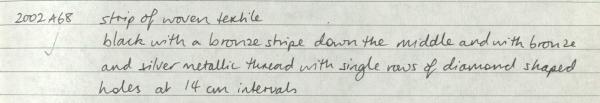 2002 A68 strip of woven textile
black with a bronze stripe down the middle and with bronze
and silver metallic thread with single rows of diamond shaped
holes at 14 cm intervals